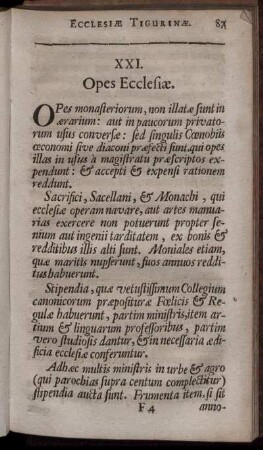 ECCLESIÆ TIGURINÆ. 87
XXI.
Opes Ecclesiæ.
OPes monasteriorum, non illatæ sunt in
ærarium: aut in paucorum privato-
rum usus conversæ: sed singulis Cœnobiis
œconomi sive diaconi præfecti sunt, qui opes
illas in usus à magistratu præscriptos ex-
pendunt: & accepti & expensi rationem
reddunt.
Sacrifici, Sacellani, & Monachi, qui
ecclesiæ operam navare, aut artes manua-
rias exercere non potuerunt propter se-
nium aut ingenii tarditatem, ex bonis &
redditibus illis alti sunt. Moniales etiam,
quæ maritis nupserunt, suos annuos reddi-
tus habuerunt.
Stipendia, quæ vetustissimum Collegium
canonicorum præposituræ Fœlicis & Re-
gulæ habuerunt, partim ministris, item ar-
tium & linguarum professoribus, partim
vero studiosis dantur, & in necessaria ædi-
ficia ecclesiæ conferuntur.
Adhæc multis ministris in urbe & agro
(qui parochias supra centum complectitur)
stipendia aucta sunt. Frumenta item, si sit
F 4 anno-